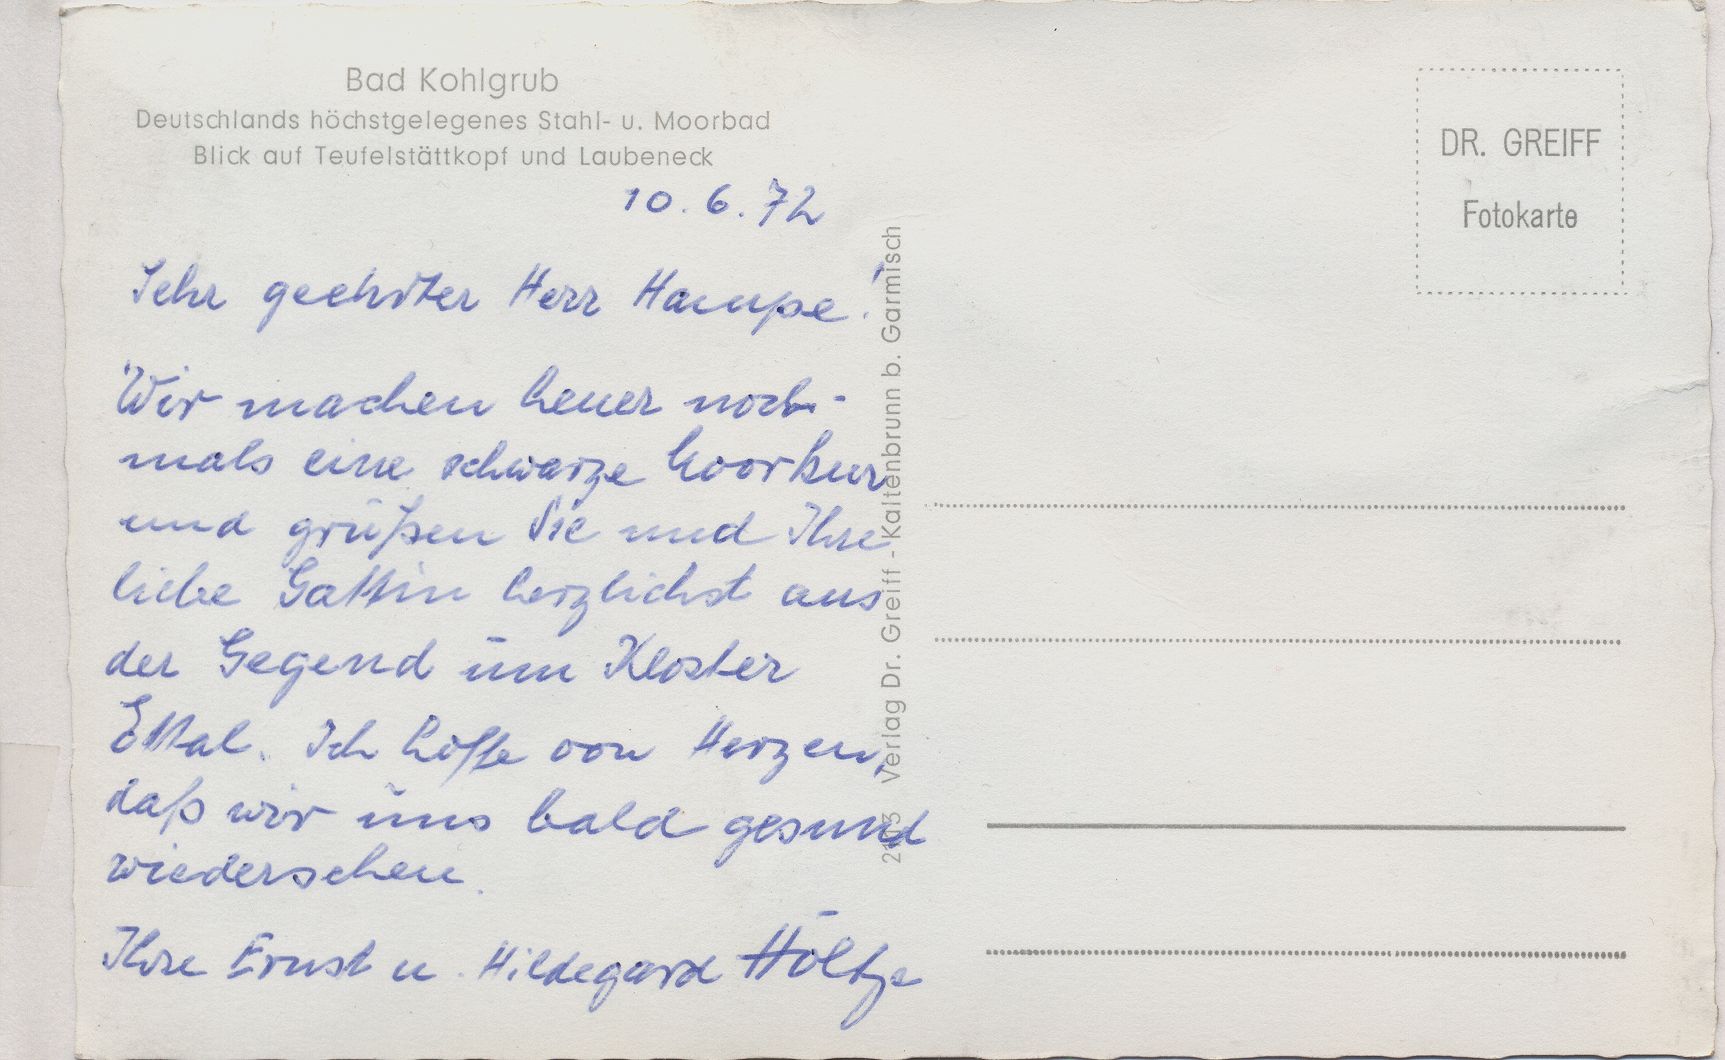 Bad Kohlgrub
Deutschlands höchstgelegenes Stahl- u. Moorbad
Blick auf Teufelstättkopf und Laubeneck
10.6.72
Sehr geehrter Herr Hampe!
Wir machen heuer noch-
mals eine schwarze Moorkur
und grüßen Sie und Ihre
liebe Gattin herzlichst aus
der Gegend um Kloster
Ettal. Ich hoffe von Herzen,
daß wir uns bald gesund
wiedersehen.
Ihre Ernst u. Hildegard Höltje
Verlag Dr. Greiff - Kaltenbrunn b. Garmisch
DR. GREIFF
Fotokarte